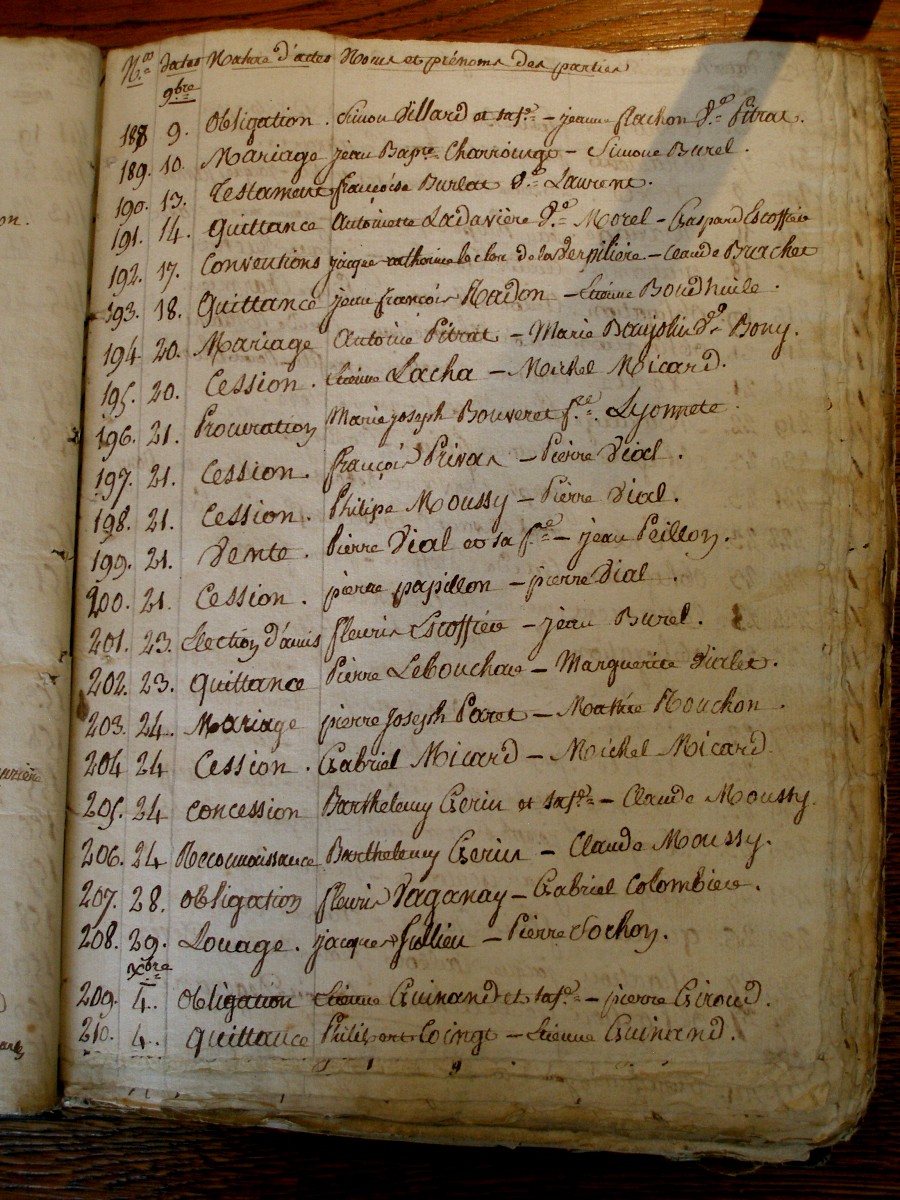 N.os dates Nature d'actes Noms et prénoms des parties
9bre
188 9. Obligation. Simon Villard et sa f.e – jeanne flachon V.e Pitrat.
189. 10. Mariage jean Bapte Charrouge – Simone Burel.
190. 13. Testament françoise Burlat V.e Laurent.
191. 14. Quittance Antoinette Ladavière V.e Morel – Gaspard Escoffier
192. 17. Conventions jacque catherine le clerc de la Verpilière – Claude Brachet
193. 18. Quittance jean françois Nadon – Etienne Boudhuile.
194 20. Mariage Antoine Pitrat – Marie Baujolin V.e Bony.
195. 20. Cession. Etienne Lacha – Michel Micard.
196. 21. Procuration Marie joseph Bouveret f.e Lyonnete
197. 21. Cession. françois Privas – Pierre Vial.
198. 21. Cession. Philipe Moussy – Pierre Vial.
199. 21. Vente. Pierre Vial et sa f.e – jean Peillon.
200. 21. Cession. pierre papillon – pierre Vial.
201. 23. Election d'amis fleurie Escoffier – jean Burel.
202. 23. quittance Pierre Lebouchae – Marguerite Vialet.
203. 24. Mariage pierre Joseph Paret – Mathie Mouchon
204 24 Cession. Gabriel Micard – Michel Micard
205. 24 concession Barthelemy Gerin et sa f.e – Claude Moussy.
206. 24 Reconnoissance Barthelemy Gerin – Claude Moussy.
207. 28. obligation fleurie Vaganay – Gabriel Colombier.
208. 29. Louage. jacque Jullien – Pierre Sochon.
xbre
209. 4. obligation Etienne Guinand et sa f.e – pierre Giroud.
210. 4. quittance Philibert Coingt – Etienne Guinand.